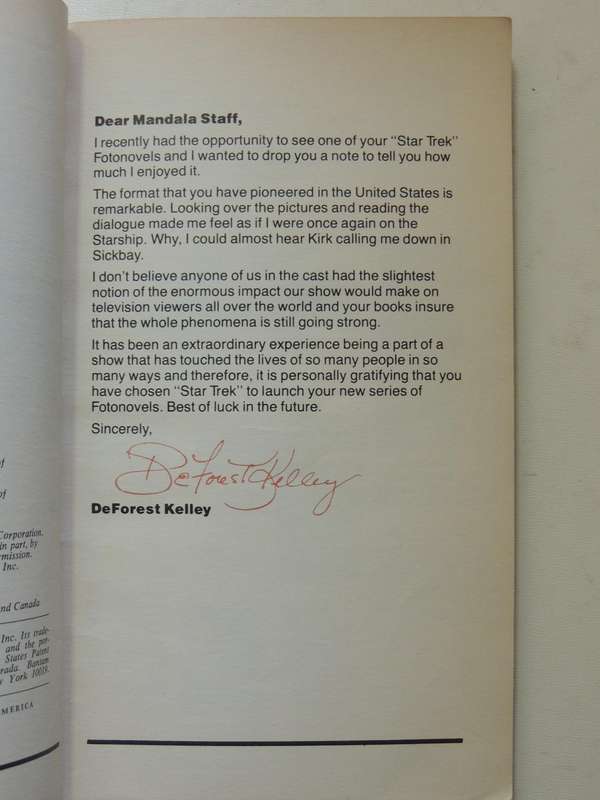 Dear Mandala Staff,
I recently had the opportunity to see one of your "Star Trek"
Fotonovels and I wanted to drop you a note to tell you how
much I enjoyed it.
The format that you have pioneered in the United States is
remarkable. Looking over the pictures and reading the
dialogue made me feel as if I were once again on the
Starship. Why, I could almost hear Kirk calling me down in
Sickbay.
I don't believe anyone of us in the cast had the slightest
notion of the enormous impact our show would make on
television viewers all over the world and your books insure
that the whole phenomena is still going strong.
It has been an extraordinary experience being a part of a
show that has touched the lives of so many people in so
many ways and therefore, it is personally gratifying that you
have chosen "Star Trek" to launch your new series of
Fotonovels. Best of luck in the future.
Sincerely,
DeForest Kelley
DeForest Kelley
of
of
Corporation.
in part, by
Inc.
and Canada
Inc. Its
and the
States Patent
Bantam
York 10019.